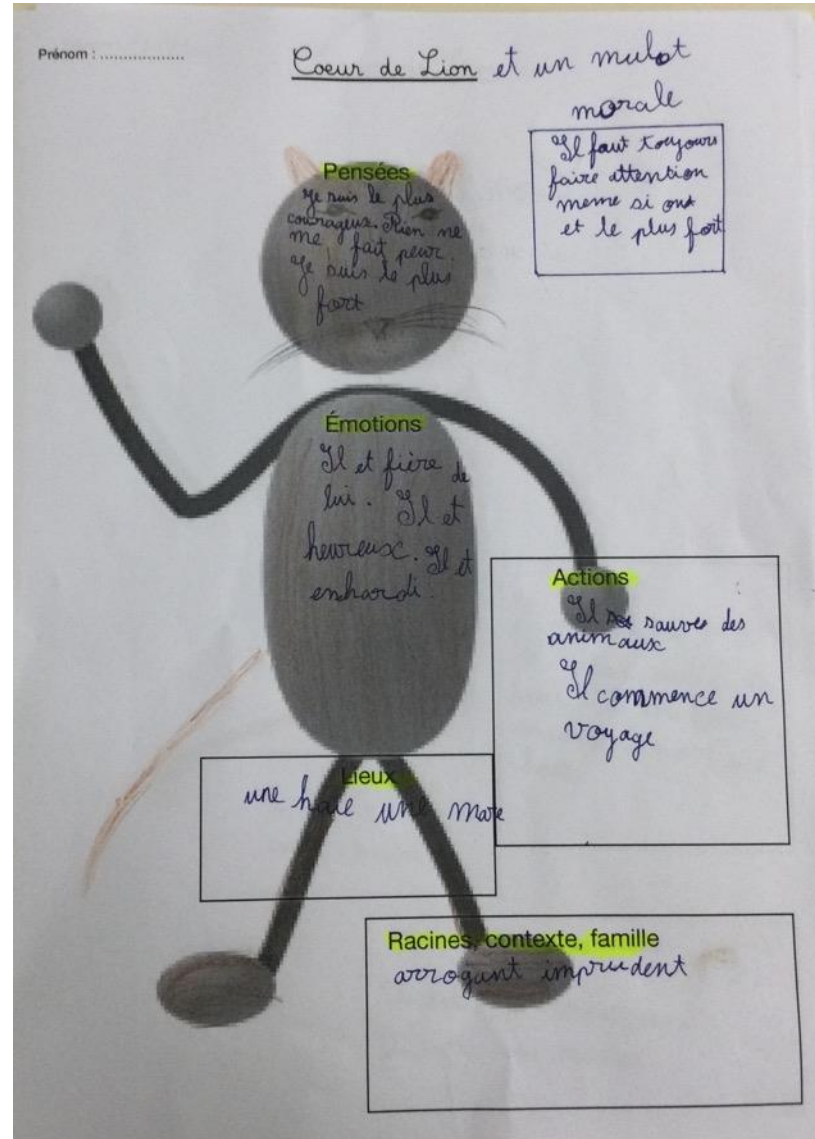 Prénom : ..................
Coeur de Lion et un mulot
morale
Il faut toujours
faire attention
meme si ont
et le plus fort
Pensées
Je suis le plus
courageux. Rien ne
me fait peur.
Je suis le plus
fort
Émotions
Il et fière de
lui. Il et
heureux. Il et
enhardi.
Actions
Il sauves des
animaux
Il commence un
voyage
Lieux
une haie une mare
Racines, contexte, famille
arrogant imprudent